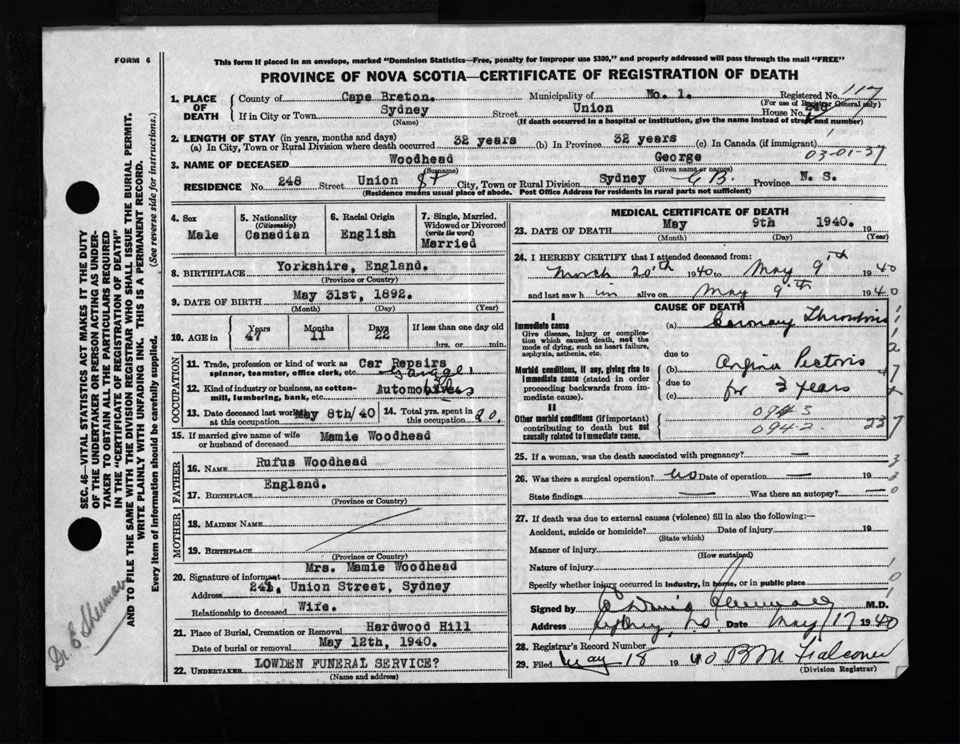 FORM 6
This form if placed in an envelope, marked "Dominion Statistics—Free, penalty for improper use $300," and properly addressed will pass through the mail "FREE"
PROVINCE OF NOVA SCOTIA—CERTIFICATE OF REGISTRATION OF DEATH
1. PLACE OF DEATH
County of Cape Breton. Municipality of No. 1. Registered No. 117
(For use of Registrar General only)
If in City or Town Sydney Street Union House No. 248
(Name) (If death occurred in a hospital or institution, give the name instead of street and number)
2. LENGTH OF STAY (in years, months and days)
(a) In City, Town or Rural Division where death occurred 32 years (b) In Province 32 years (c) In Canada (if immigrant)
3. NAME OF DECEASED Woodhead George 03-01-37
(Surname) (Given name or names)
RESIDENCE No. 248 Street Union St City, Town or Rural Division Sydney C B. Province N. S.
(Residence means usual place of abode. Post Office Address for residents in rural parts not sufficient)
4. Sex Male
5. Nationality (Citizenship) Canadian
6. Racial Origin English
7. Single, Married, Widowed or Divorced (write the word) Married
8. BIRTHPLACE Yorkshire, England.
(Province or Country)
9. DATE OF BIRTH May 31st, 1892.
(Month) (Day) (Year)
10. AGE in Years 47 Months 11 Days 22 If less than one day old hrs. or min.
OCCUPATION
11. Trade, profession or kind of work as spinner, teamster, office clerk, etc. Car Repairs Garage
12. Kind of industry or business, as cotton-mill, lumbering, bank, etc. Automotives
13. Date deceased last worked at this occupation May 8th/40 14. Total yrs. spent in this occupation 20.
15. If married give name of wife or husband of deceased Mamie Woodhead
FATHER
16. NAME Rufus Woodhead
17. BIRTHPLACE England.
(Province or Country)
MOTHER
18. MAIDEN NAME
19. BIRTHPLACE
(Province or Country)
20. Signature of informant Mrs. Mamie Woodhead
Address 248, Union Street, Sydney
Relationship to deceased Wife.
21. Place of Burial, Cremation or Removal Hardwood Hill
Date of burial or removal May 12th, 1940.
22. UNDERTAKER LOWDEN FUNERAL SERVICE?
(Name and address)
MEDICAL CERTIFICATE OF DEATH
23. DATE OF DEATH May 9th 1940. 19
(Month) (Day) (Year)
24. I HEREBY CERTIFY that I attended deceased from:
March 20th 1940 to May 9th 1940
and last saw him alive on May 9th 1940
CAUSE OF DEATH
I
Immediate cause
Give disease, injury or complication which caused death, not the mode of dying, such as heart failure, asphyxia, asthenia, etc.
(a) Coronary Thrombosis
due to
Morbid conditions, if any, giving rise to immediate cause (stated in order proceeding backwards from immediate cause).
(b) Angina Pectoris
due to
(c) for 3 years
II
Other morbid conditions (if important) contributing to death but not causally related to immediate cause.
094-3
094-2
25. If a woman, was the death associated with pregnancy? —
26. Was there a surgical operation? no Date of operation — 19
State findings — Was there an autopsy? —
27. If death was due to external causes (violence) fill in also the following:—
Accident, suicide or homicide? Date of injury 19
(State which)
Manner of injury
(How sustained)
Nature of injury
Specify whether injury occurred in industry, in home, or in public place
Signed by M.D.
Address Sydney, N.S. Date May 17 1940
28. Registrar's Record Number
29. Filed May 18 1940 B M Falconer
(Division Registrar)
SEC. 46—VITAL STATISTICS ACT MAKES IT THE DUTY
OF THE UNDERTAKER OR PERSON ACTING AS UNDER-
TAKER TO OBTAIN ALL THE PARTICULARS REQUIRED
IN THE "CERTIFICATE OF REGISTRATION OF DEATH"
AND TO FILE THE SAME WITH THE DIVISION REGISTRAR WHO SHALL ISSUE THE BURIAL PERMIT.
WRITE PLAINLY WITH UNFADING INK. THIS IS A PERMANENT RECORD.
Every item of information should be carefully supplied. (See reverse side for instructions.)